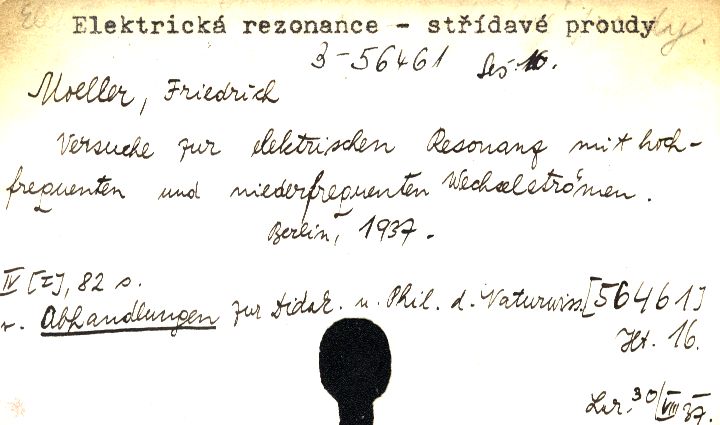 Elektrická rezonance - střídavé proudy
3-56461 Seš. 16.
Moeller, Friedrich
Versuche zur elektrischen Resonanz mit hoch-
frequenten und niederfrequenten Wechselströmen.
Berlin, 1937.
IV [I], 82 s.
v. Abhandlungen zur Didak. u. Phil. d. Naturwiss. [56461]
Hft. 16.
30/VIII 37.